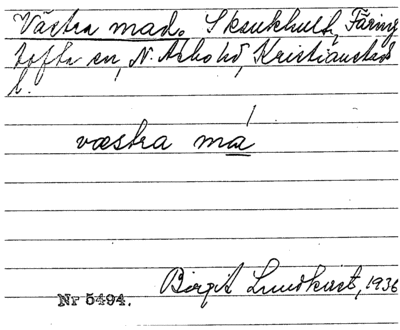 Västra mad. Skaukhult, Färing
tofta sn, N. Åsbo hd, Kristianstads
l.
væstra má
Birgit Lundkvist, 1936
Nr 5494.